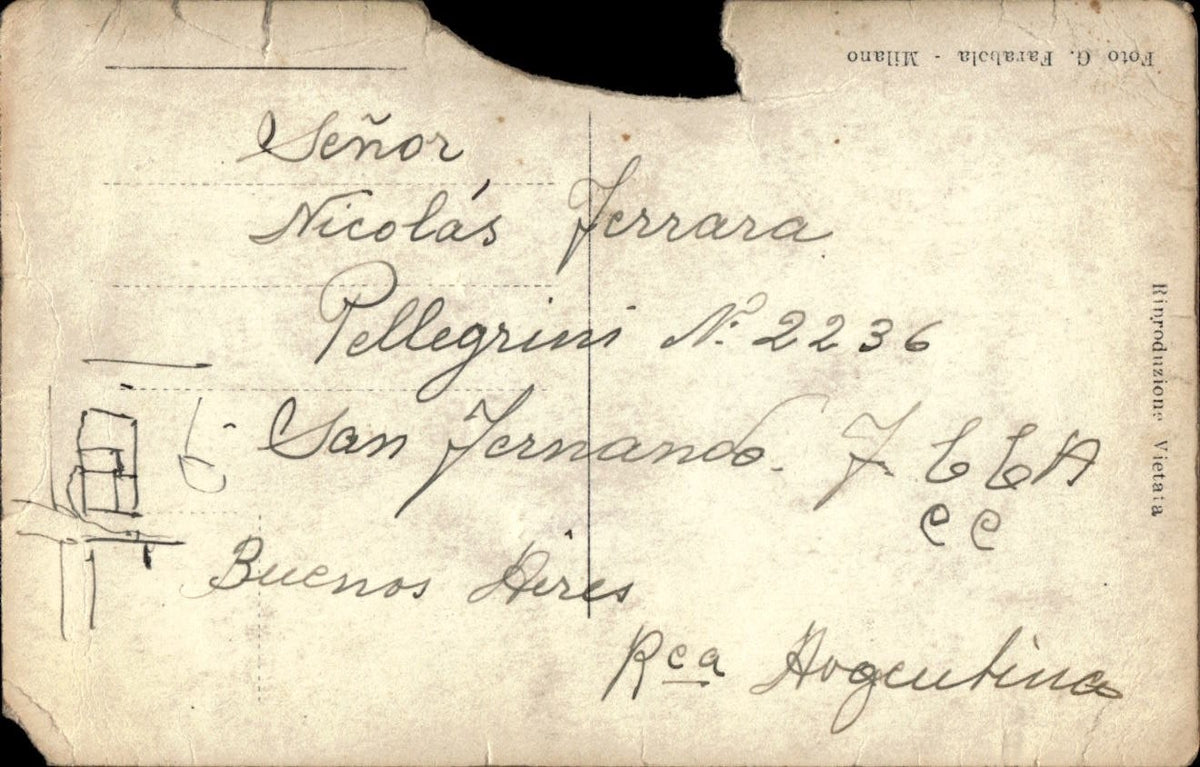 Foto G. Farabola - Milano
Señor
Nicolás Ferrara
Pellegrini Nº 2236
San Fernando. F C C A
C C
Buenos Aires
Rca Argentina
Riproduzione Vietata